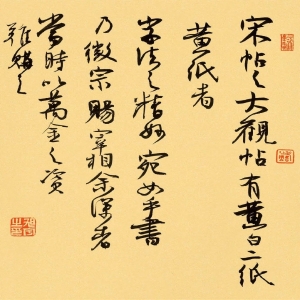 宋帖之大觀帖有黃白二紙
黃紙者
字法之精妙宛如手書
乃徽宗賜宰相余深者
當時以萬金之資
難購之